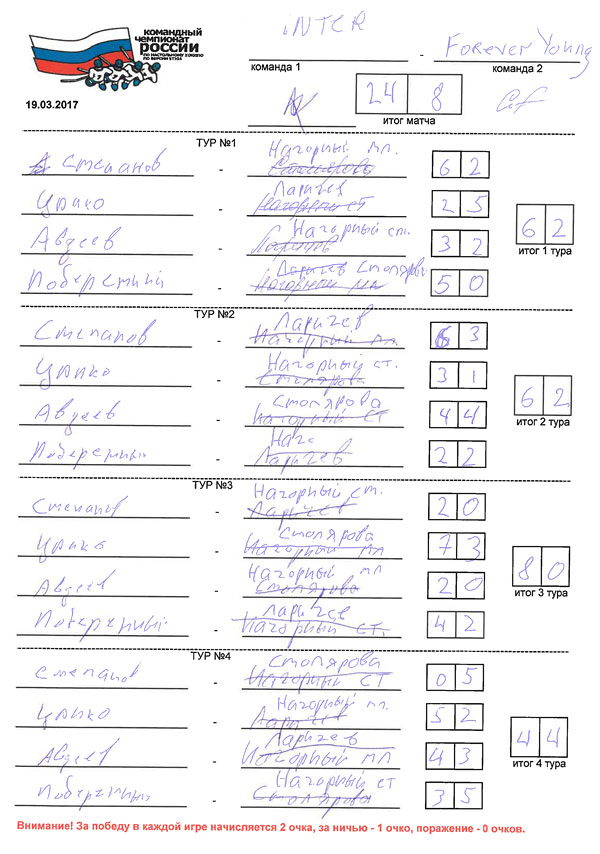 командный
чемпионат
россии
по настольному хоккею
по версии ETHSA
19.03.2017
INTER - Forever Young
команда 1 команда 2
24 8
итог матча
ТУР №1
Степанов - Нагорный мл. 6 2
Цанко - Ларичев 2 5
Авдеев - Нагорный ст. 3 2
Побережный - Столярова 5 0
6 2
итог 1 тура
ТУР №2
Степанов - Ларичев 6 3
Цанко - Нагорный ст. 3 1
Авдеев - Столярова 4 4
Побережный - Наго 2 2
6 2
итог 2 тура
ТУР №3
Степанов - Нагорный ст. 2 0
Цанко - Столярова 7 3
Авдеев - Нагорный мл 2 0
Побережный - Ларичев 4 2
8 0
итог 3 тура
ТУР №4
Степанов - Столярова 0 5
Цанко - Нагорный мл. 5 2
Авдеев - Ларичев 4 3
Побережный - Нагорный ст 3 5
4 4
итог 4 тура
Внимание! За победу в каждой игре начисляется 2 очка, за ничью - 1 очко, поражение - 0 очков.